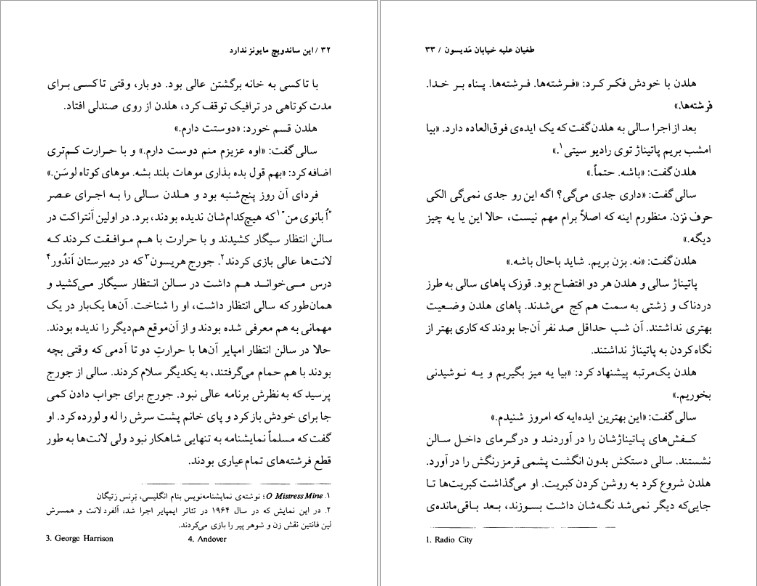 ۳۲ / این ساندویچ مایونز ندارد
با تاکسی به خانه برگشتن عالی بود. دوبار، وقتی تاکسی برای
مدت کوتاهی در ترافیک توقف کرد، هلدن از روی صندلی افتاد.
هلدن قسم خورد: «دوستت دارم.»
سالی گفت: «اوه عزیزم منم دوست دارم.» و با حرارت کم‌تری
اضافه کرد: «بهم قول بده بذاری موهات بلند بشه. موهای کوتاه لوسَن.»
فردای آن روز پنج‌شنبه بود و هلدن سالی را به اجرای عصر
«اُ بانوی من»۱ که هیچ‌کدام‌شان ندیده بودند، برد. در اولین آنتراکت در
سالن انتظار سیگار کشیدند و با حرارت با هم موافقت کردند که
لانت‌ها عالی بازی کردند۲. جورج هریسون۳ که در دبیرستان آندُور۴
درس می‌خواند هم داشت در سالن انتظار سیگار می‌کشید و
همان‌طور که سالی انتظار داشت، او را شناخت. آن‌ها یک‌بار در یک
مهمانی به هم معرفی شده بودند و از آن‌موقع هم‌دیگر را ندیده بودند.
حالا در سالن انتظار امپایر آن‌ها با حرارتِ دو تا آدمی که وقتی بچه
بودند با هم حمام می‌گرفتند، به یکدیگر سلام کردند. سالی از جورج
پرسید که به نظرش برنامه عالی نبود. جورج برای جواب دادن کمی
جا برای خودش باز کرد و پای خانم پشت سرش را له و لورده کرد. او
گفت که مسلماً نمایشنامه به تنهایی شاهکار نبود ولی لانت‌ها به طور
قطع فرشته‌های تمام‌عیاری بودند.
۱. O Mistress Mine؛ نوشته‌ی نمایشنامه‌نویس بنام انگلیسی، تِرِنس رَتیگان
۲. در این نمایش که در سال ۱۹۶۴ در تئاتر ایمپایر اجرا شد، آلفرد لانت و همسرش
لین فانتین نقش زن و شوهر پیر را بازی می‌کردند.
3. George Harrison 4. Andover
طغیان علیه خیابان مَدیسون / ۳۳
هلدن با خودش فکر کرد: «فرشته‌ها. فرشته‌ها. پناه بر خدا.
فرشته‌ها.»
بعد از اجرا سالی به هلدن گفت که یک ایده‌ی فوق‌العاده دارد. «بیا
امشب بریم پاتیناژ توی رادیو سیتی۱.»
هلدن گفت: «باشه. حتماً.»
سالی گفت: «داری جدی می‌گی؟ اگه این رو جدی نمی‌گی الکی
حرف نزن. منظورم اینه که اصلاً برام مهم نیست، حالا این یا یه چیز
دیگه.»
هلدن گفت: «نه. بزن بریم. شاید باحال باشه.»
پاتیناژ سالی و هلدن هر دو افتضاح بود. قوزک پاهای سالی به طرز
دردناک و زشتی به سمت هم کج می‌شدند. پاهای هلدن وضعیت
بهتری نداشتند. آن شب حداقل صد نفر آن‌جا بودند که کاری بهتر از
نگاه کردن به پاتیناژ نداشتند.
هلدن یک‌مرتبه پیشنهاد کرد: «بیا یه میز بگیریم و یه نوشیدنی
بخوریم.»
سالی گفت: «این بهترین ایده‌ایه که امروز شنیدم.»
کفش‌های پاتیناژشان را در آوردند و در گرمای داخل سالن
نشستند. سالی دستکش بدون انگشت پشمی قرمز رنگش را در آورد.
هلدن شروع کرد به روشن کردن کبریت. او می‌گذاشت کبریت‌ها تا
جایی‌که دیگر نمی‌شد نگه‌شان داشت بسوزند، بعد باقی‌مانده‌ی
1. Radio City